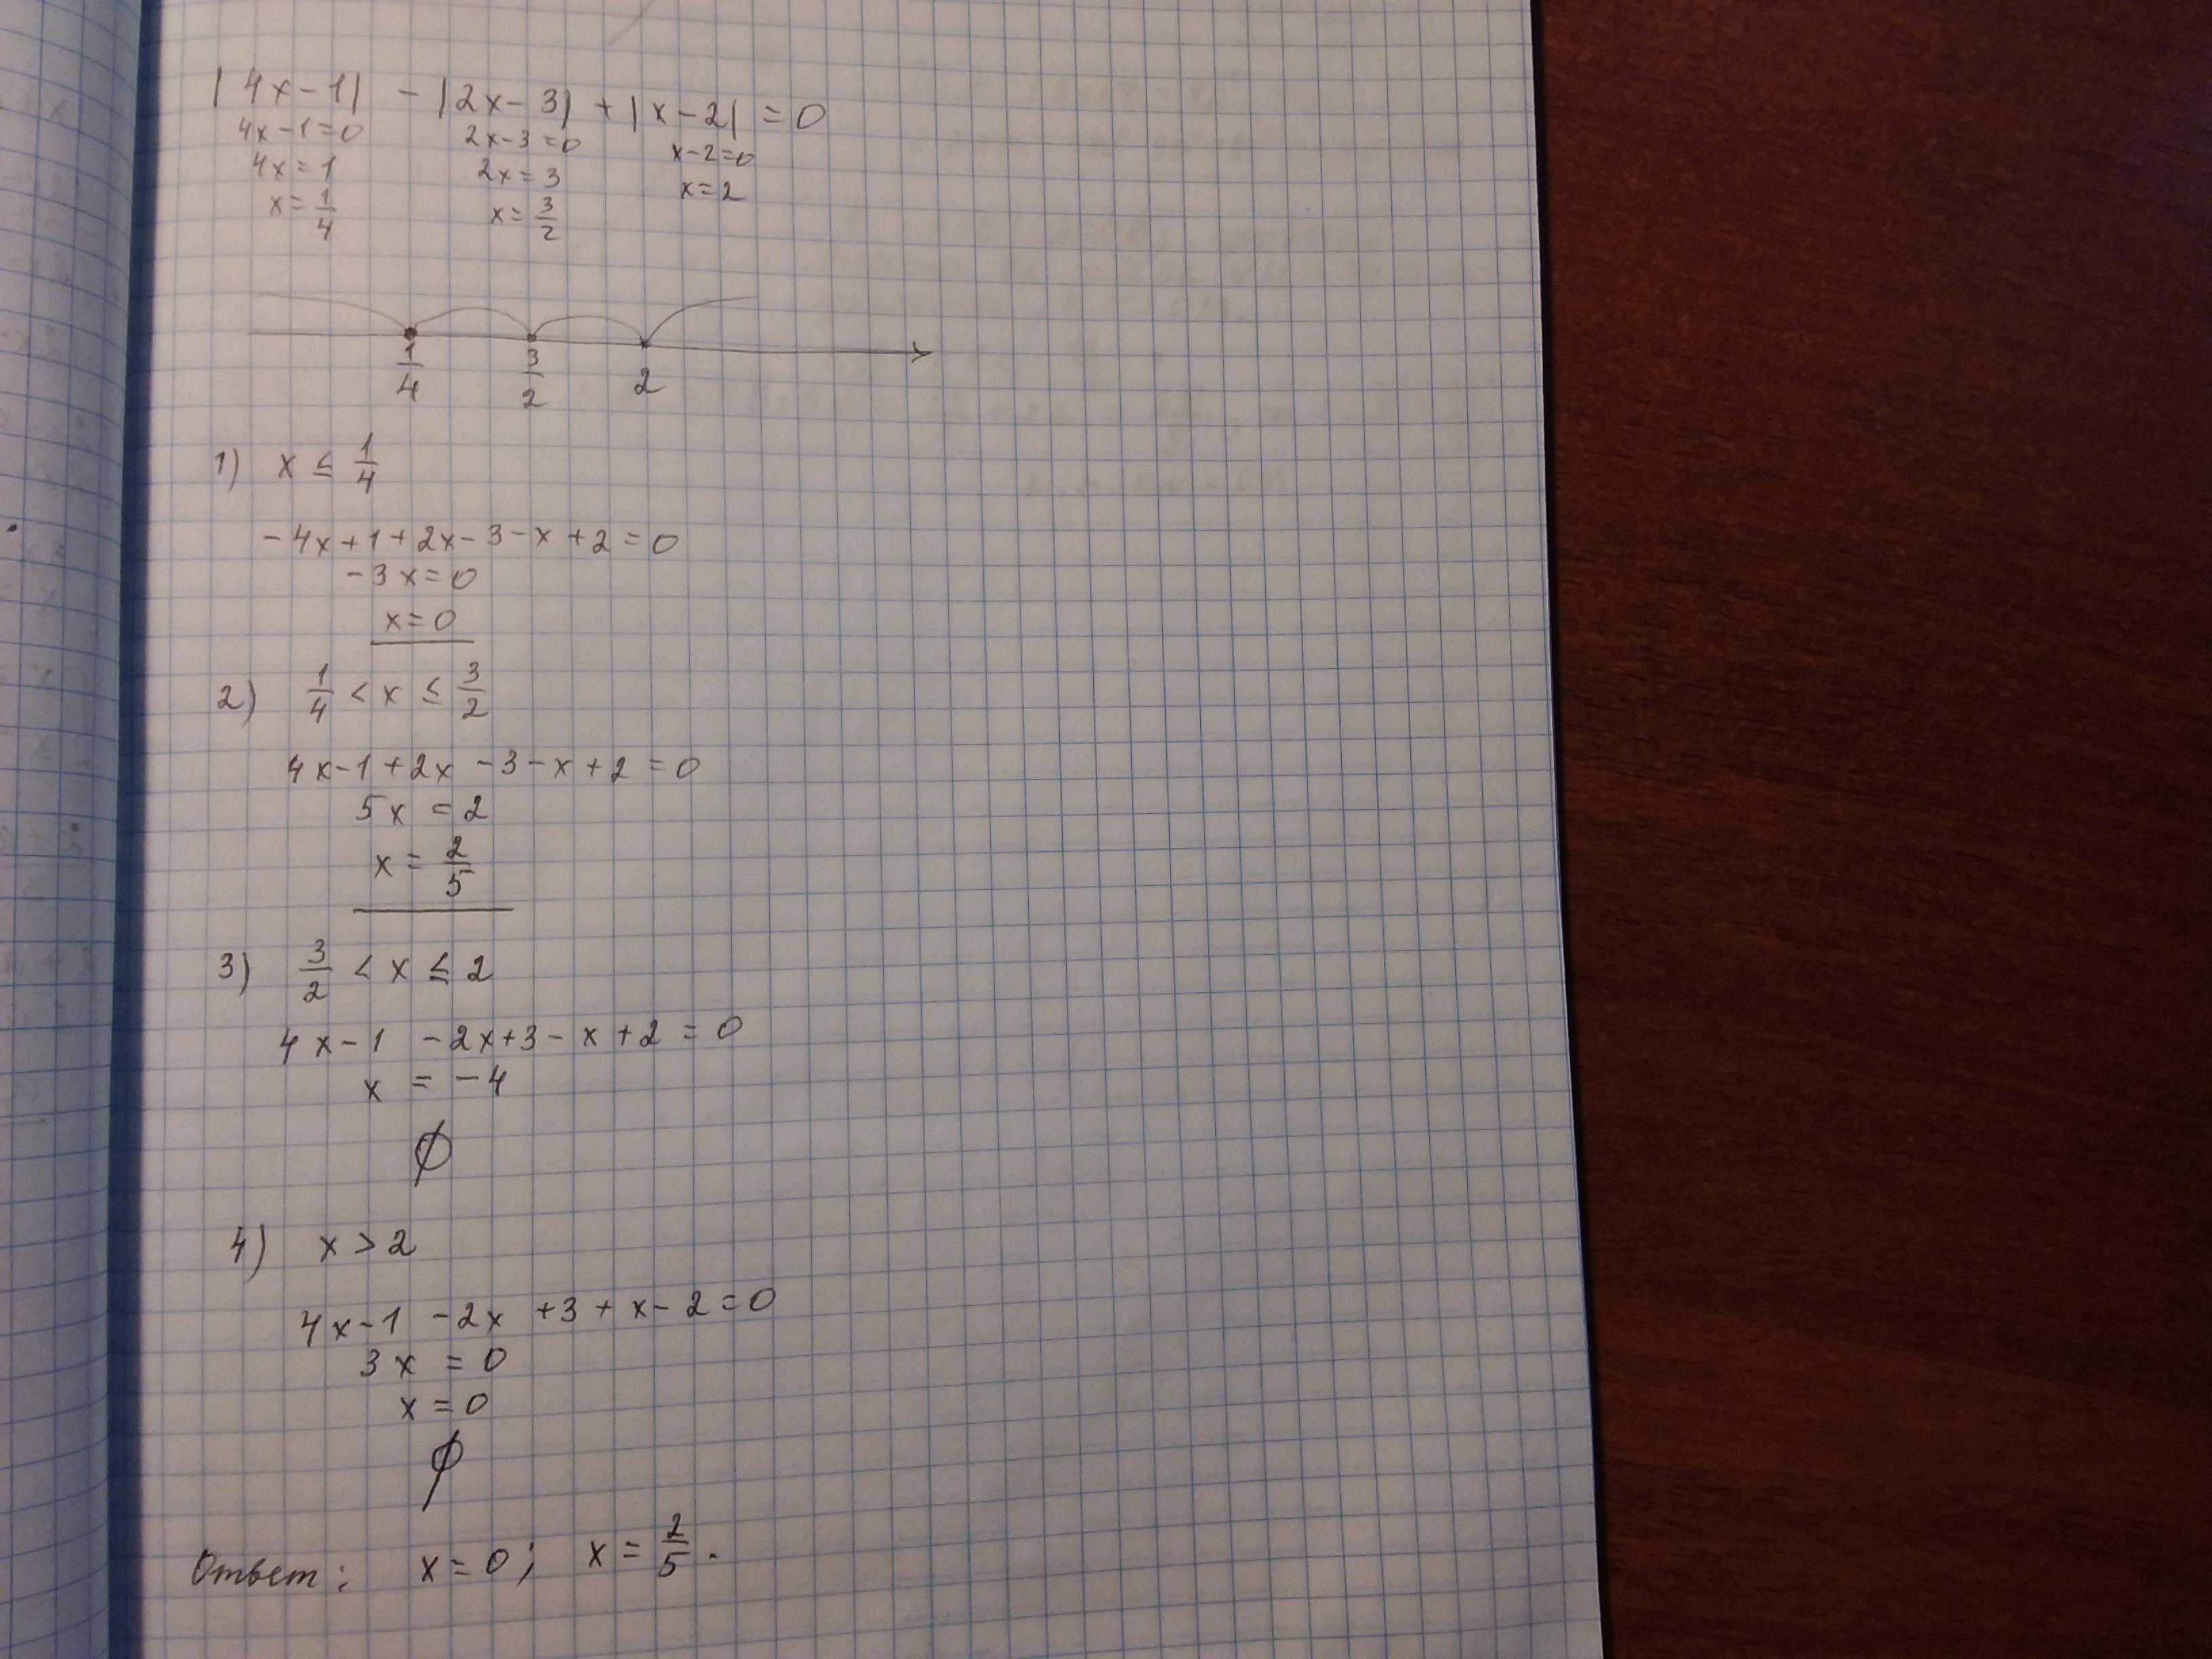 |4x-1| - |2x-3| + |x-2| = 0
4x-1=0 2x-3=0 x-2=0
4x=1 2x=3 x=2
x=1/4 x=3/2
1/4 3/2 2
1) x ≤ 1/4
-4x+1+2x-3-x+2=0
-3x=0
x=0
2) 1/4 < x ≤ 3/2
4x-1+2x-3-x+2=0
5x=2
x=2/5
3) 3/2 < x ≤ 2
4x-1 -2x+3-x+2=0
x = -4
∅
4) x > 2
4x-1 -2x +3+x-2=0
3x = 0
x=0
∅
Ответ: x=0; x=2/5.